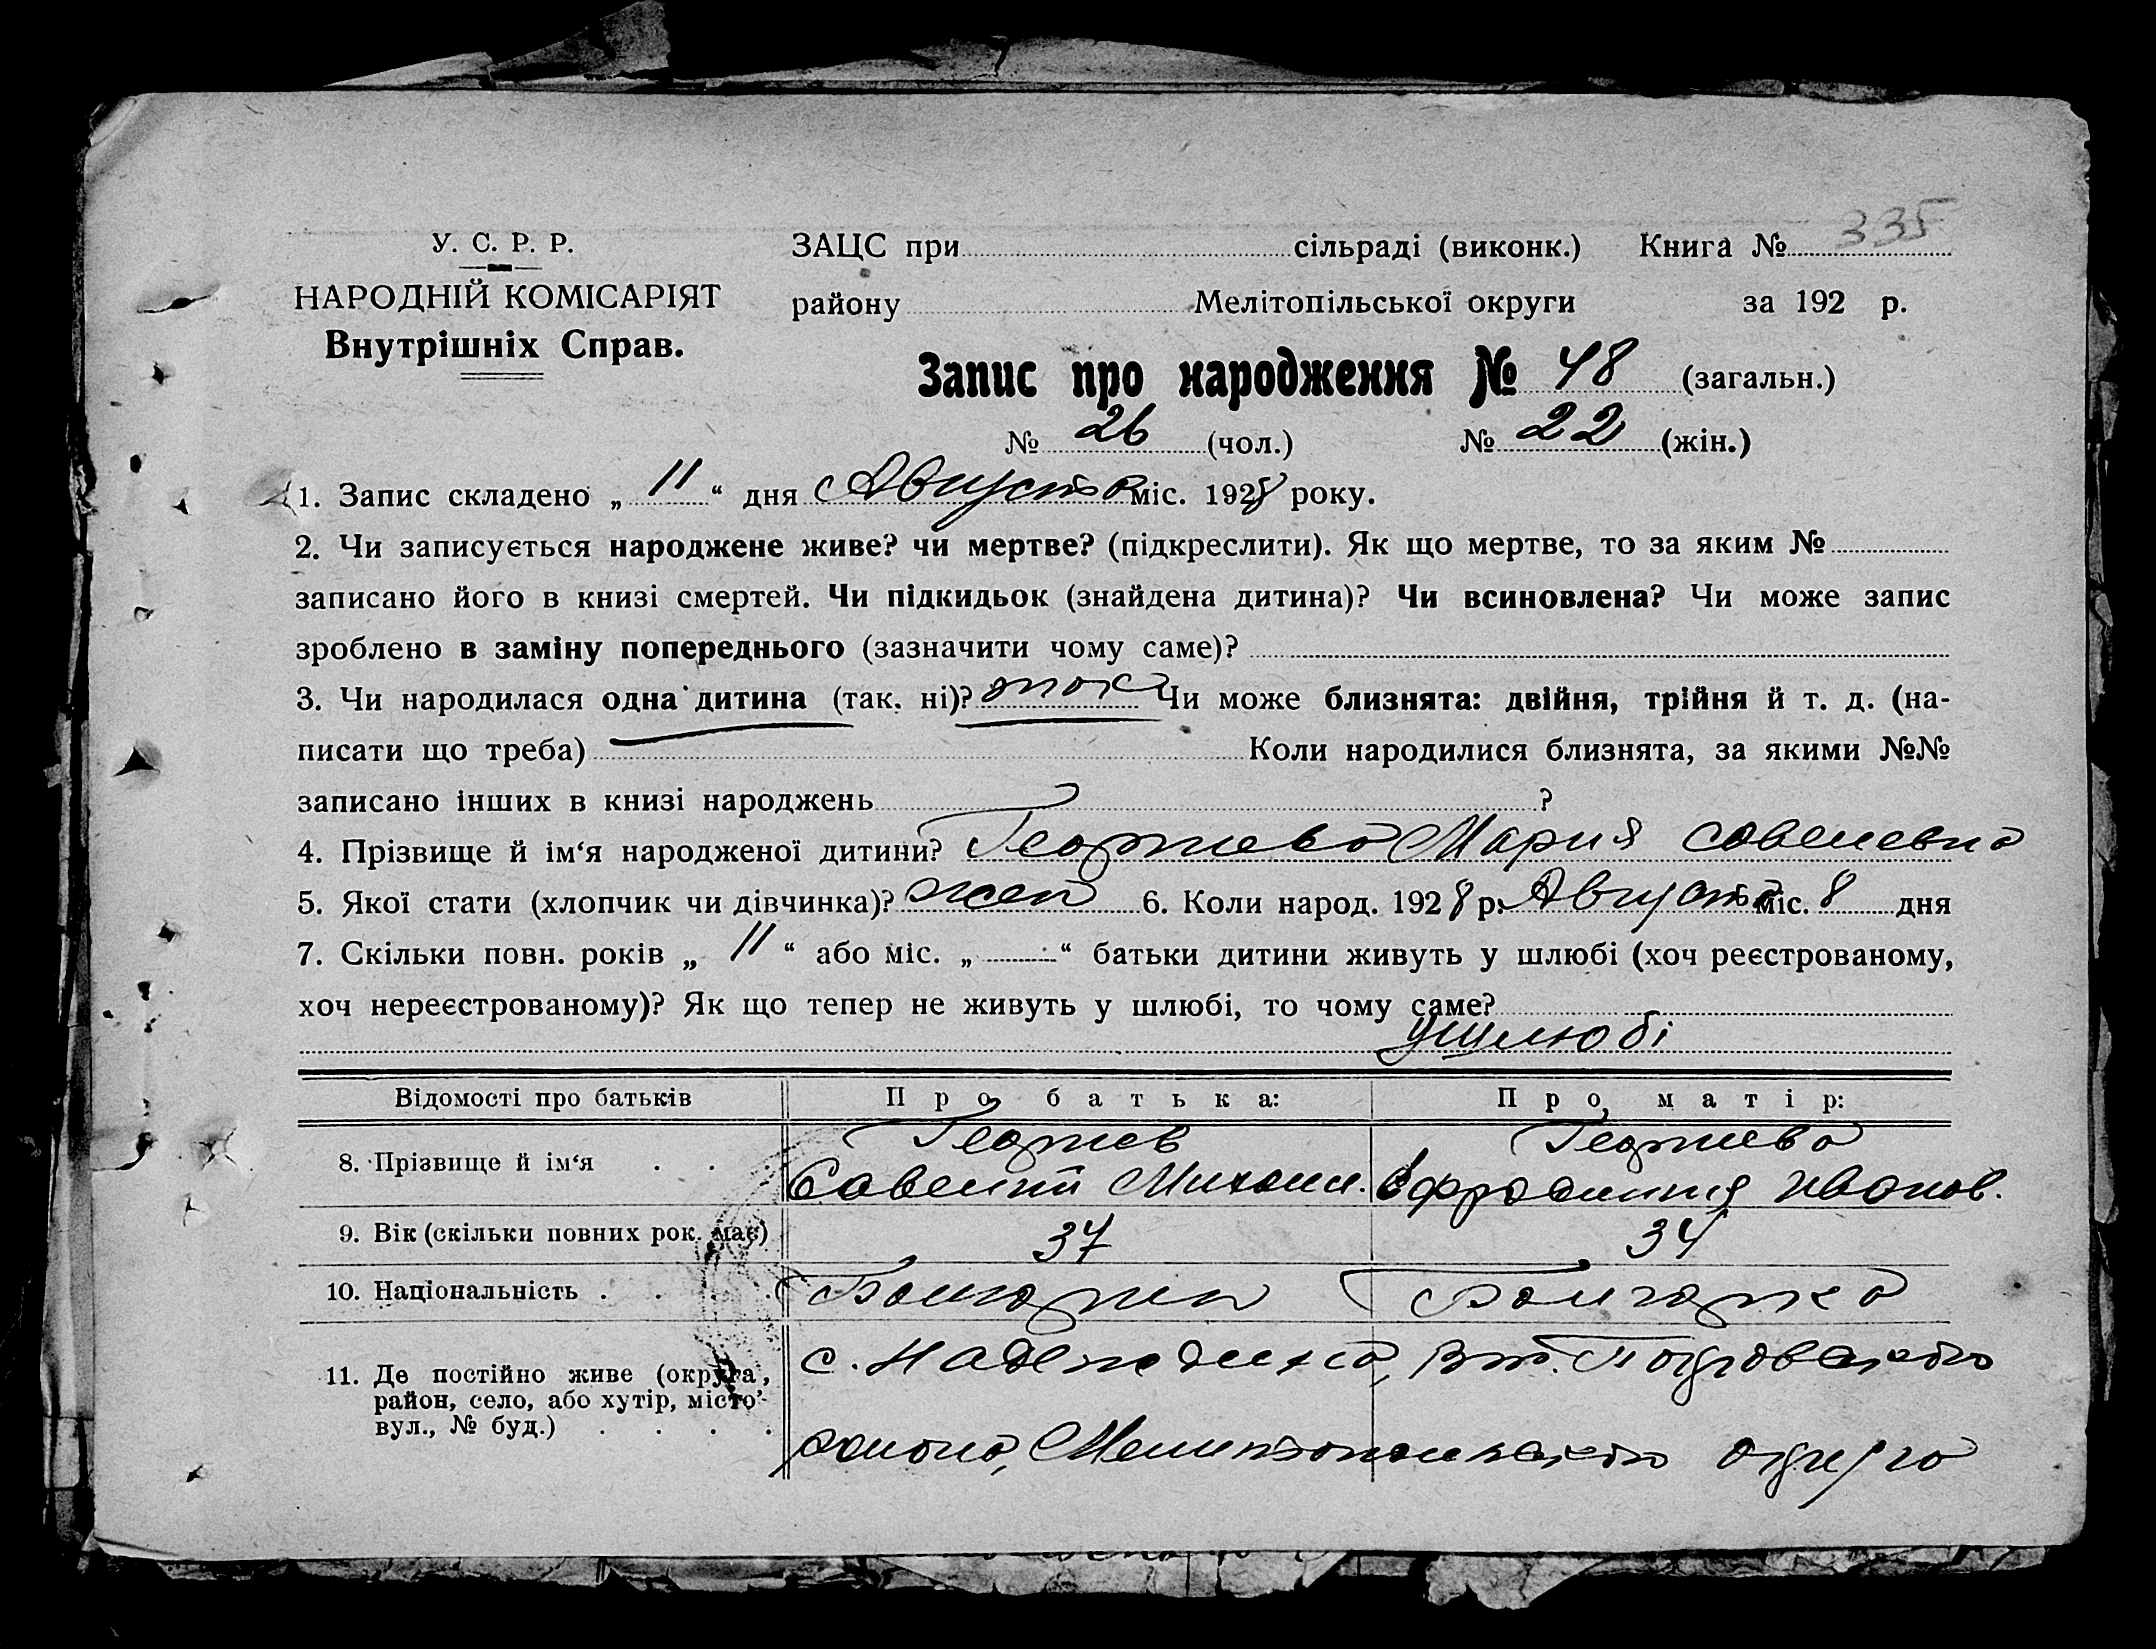 335
У. С. Р. Р. ЗАЦС при сільраді (виконк.) Книга №
НАРОДНІЙ КОМІСАРІЯТ району Мелітопільської округи за 192 р.
Внутрішніх Справ.
Запис про народження № 48 (загальн.)
№ 26 (чол.) № 22 (жін.)
1. Запис складено „ 11 “ дня Августа міс. 1928 року.
2. Чи записується народжене живе? чи мертве? (підкреслити). Як що мертве, то за яким №
записано його в книзі смертей. Чи підкидьок (знайдена дитина)? Чи всиновлена? Чи може запис
зроблено в заміну попереднього (зазначити чому саме)?
3. Чи народилася одна дитина (так, ні)? так Чи може близнята: двійня, трійня й т. д. (на-
писати що треба) Коли народилися близнята, за якими №№
записано інших в книзі народжень ?
4. Прізвище й ім‘я народженої дитини? Георгиева Мария Савелевна
5. Якої стати (хлопчик чи дівчинка)? жен 6. Коли народ. 1928 р. Августа міс. 8 дня
7. Скільки повн. років „ 11 “ або міс. „ “ батьки дитини живуть у шлюбі (хоч реєстрованому,
хоч нереєстрованому)? Як що тепер не живуть у шлюбі, то чому саме?
у шлюбі
Відомості про батьків Про батька: Про матір:
8. Прізвище й ім‘я Георгиев Георгиева
Савелий Михаил. Ефросиния Иванов.
9. Вік (скільки повних рок. має) 37 34
10. Національність Болгарин Болгарка
11. Де постійно живе (округа, район, село, або хутір, місто, вул., № буд.)
с. Надеждина,
района, Мелитопольского округа